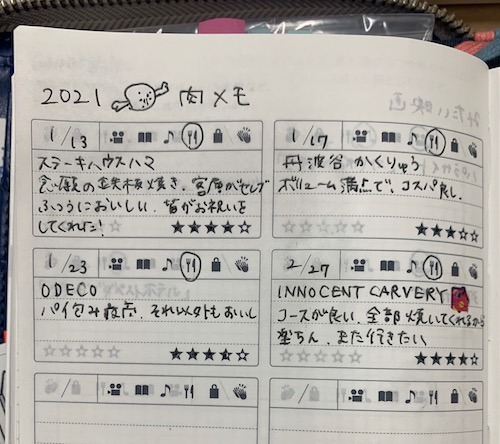 2021 肉メモ
1/13
ステーキハウスハマ
念願の鉄板焼き。客層がセレブ
ふつうにおいしい。皆がお祝いを
してくれた!
1/17
丹波谷 かくりゅう
ボリューム満点で、コスパ良し。
1/23
ODECO
パイ包み最高。それ以外もおいし
2/27
INNOCENT CARVERY
コースが良い。全部焼いてくれるから
楽ちん。また行きたい
みたい映画